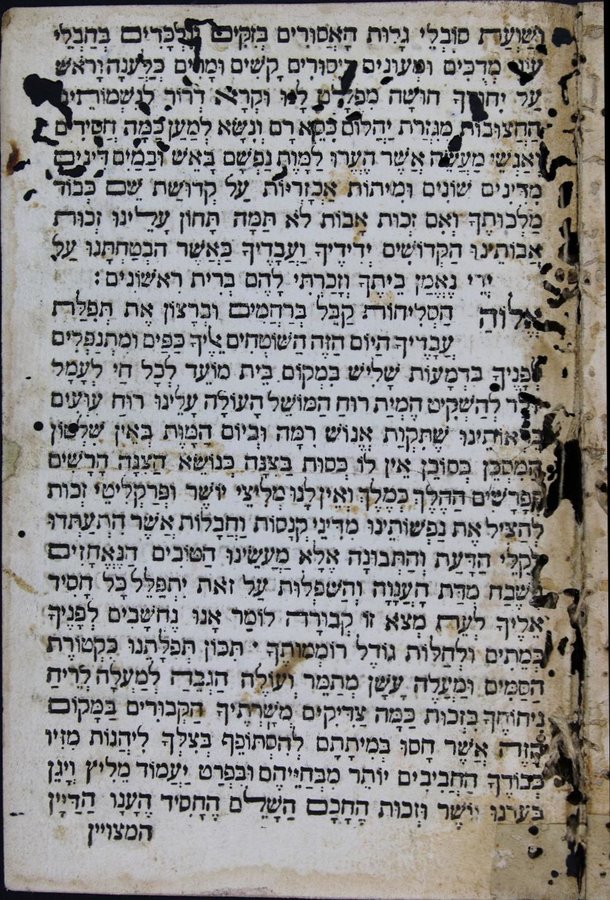 וְשַׁוְעַת סוֹבְלֵי גָלוּת הָאֲסוּרִים בְּזִקִּים בְּחַבְלֵי
מְדֻכִּים וּמְעוּנִים יִסּוּרִים קָשִׁים וּמָרִים כְּלַעֲנָה וְרֹאשׁ
עַל יִחוּדְךָ חוּשָׁה מִפְלָט לָנוּ וּקְרָא דְרוֹר לְנִשְׁמוֹתֵינוּ
הַחֲצוּבוֹת מִגִּזְרַת יַהֲלוֹם כִּסֵּא רָם וְנִשָּׂא לְמַעַן כַּמָּה חֲסִידִים
וְאַנְשֵׁי מַעֲשֶׂה אֲשֶׁר הֶעֱרוּ לַמָּוֶת נַפְשָׁם בָּאֵשׁ וּבַמַּיִם דִּינִים
מִדִּינִים שׁוֹנִים וּמִיתוֹת אַכְזָרִיּוֹת עַל קְדוּשַׁת שֵׁם כְּבוֹד
מַלְכוּתֶךָ וְאִם זְכוּת אָבוֹת לֹא תַמָּה תָּחוֹן עָלֵינוּ זְכוּת
אֲבוֹתֵינוּ הַקְּדוֹשִׁים יְדִידֶיךָ וַעֲבָדֶיךָ כַּאֲשֶׁר הִבְטַחְתָּנוּ עַל
יְדֵי נֶאֱמַן בֵּיתֶךָ וְזָכַרְתִּי לָהֶם בְּרִית רִאשׁוֹנִים :
אֱלוֹהַּ הַסְּלִיחוֹת קַבֵּל בְּרַחֲמִים וּבְרָצוֹן אֶת תְּפִלַּת
עֲבָדֶיךָ הַיּוֹם הַזֶּה הַשּׁוֹטְחִים אֵלֶיךָ כַּפַּיִם וּמִתְנַפְּלִים
לְפָנֶיךָ בִּדְמָעוֹת שָׁלִישׁ בִּמְקוֹם בֵּית מוֹעֵד לְכָל חַי לֶעָמָל
לְהַשְׁקִיט הֶמְיַת רוּחַ הַמּוֹשֵׁל הָעוֹלֶה עָלֵינוּ רוּחַ עִוְעִים
שֶׁתִּקְוַת אֱנוֹשׁ רִמָּה וּבְיוֹם הַמָּוֶת בְּאֵין שִׁלְטוֹן
הַמִּסְכֵּן בְּסוֹכֵן אֵין לוֹ כְּסוּת בַּצִּנָּה כְּנוֹשֵׂא הַצִּנָּה הָרָשִׁים
הַהֵלֶךְ כַּמֶּלֶךְ וְאֵין לָנוּ מְלִיצֵי יוֹשֶׁר וּפְרַקְלִיטֵי זְכוּת
לְהַצִּיל אֶת נַפְשׁוֹתֵינוּ מִדִּינֵי קְנָסוֹת וַחֲבָלוֹת אֲשֶׁר הִתְעַתְּדוּ
לְקַלֵּי הַדַּעַת וְהַתְּבוּנָה אֶלָּא מַעֲשֵׂנוּ הַטּוֹבִים הַנֶּאֱחָזִים
מִשֶּׁבַח מִדַּת הָעֲנָוָה וְהַשִּׁפְלוּת עַל זֹאת יִתְפַּלֵּל כָּל חָסִיד
אֵלֶיךָ לְעֵת מְצֹא זוֹ קְבוּרָה לוֹמַר אָנוּ נֶחְשָׁבִים לְפָנֶיךָ
כַּמֵּתִים וּלְחַלּוֹת גּוֹדֶל רוֹמְמוּתֶךָ • תִּכּוֹן תְּפִלָּתֵנוּ כִּקְטוֹרֶת
הַסַּמִּים וּמַעֲלֶה עָשָׁן מִתַמֵּר וְעוֹלֶה הַגְבֵּהַּ לְמַעְלָה לְרֵיחַ
נִיחוֹחֶךָ בִּזְכוּת כַּמָּה צַדִּיקִים מְשָׁרְתֶיךָ הַקְּבוּרִים בַּמָּקוֹם
הַזֶּה אֲשֶׁר חָסוּ בְּמִיתָתָם לְהִסְתּוֹפֵף בְּצִלֶּךָ לֵיהָנוֹת מִזִּיו
כְּבוֹדֶךָ הַחֲבִיבִים יוֹתֵר מִבְּחַיֵּיהֶם וּבִפְרַט יַעֲמוֹד מֵלִיץ וְיָגֵן
בַּעֲדֵנוּ יוֹשֶׁר וּזְכוּת הֶחָכָם הַשָּׁלֵם הֶחָסִיד הֶעָנָו הַדַּיָּין
המצויין